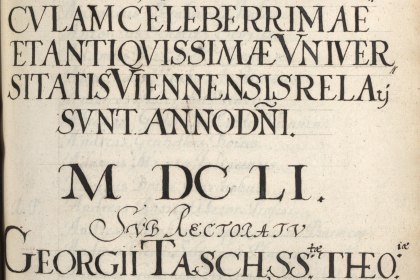 CVLAM CELEBERRIMAE
ET ANTIQVISSIMÆ VNIVER
SITATIS VIENNENSIS RELAIJ
SVNT ANNO DÑI.
M DC LI.
SVB RECTORATV
GEORGII TASCH, SS.tæ THEO.iæ